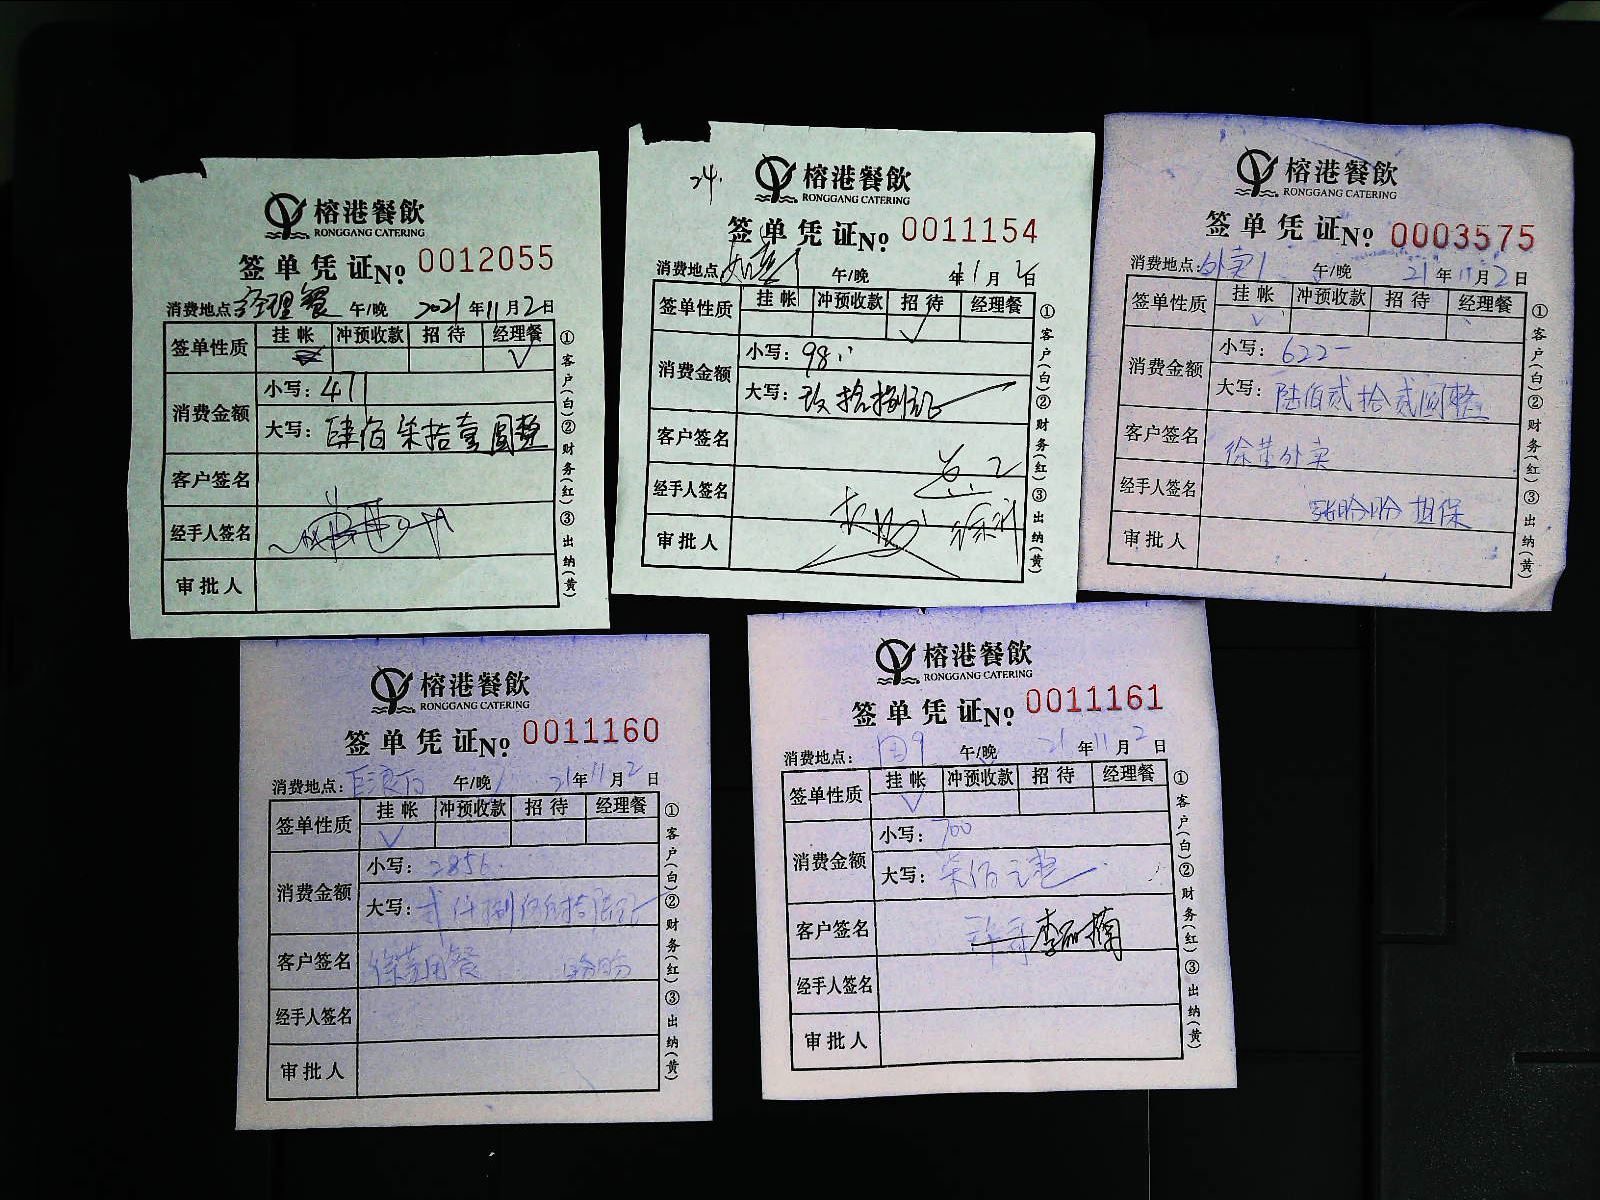 榕港餐飲
RONGGANG CATERING
签单凭证No 0012055
消费地点 经理餐 午/晚 2021年11月2日
签单性质 挂帐 冲预收款 招待 经理餐
✓
消费金额 小写: 471
大写: 肆佰柒拾壹圆整
客户签名
经手人签名
审批人
①客户(白)②财务(红)③出纳(黄)
榕港餐飲
RONGGANG CATERING
签单凭证No 0011154
消费地点 午/晚 年11月2日
签单性质 挂帐 冲预收款 招待 经理餐
✓
消费金额 小写: 98
大写: 玖拾捌元
客户签名
经手人签名
审批人
①客户(白)②财务(红)③出纳(黄)
榕港餐飲
RONGGANG CATERING
签单凭证No 0003575
消费地点: 外卖1 午/晚 21年11月2日
签单性质 挂帐 冲预收款 招待 经理餐
✓
消费金额 小写: 622-
大写: 陆佰贰拾贰圆整
客户签名 外卖
经手人签名 担保
审批人
①客户(白)②财务(红)③出纳(黄)
榕港餐飲
RONGGANG CATERING
签单凭证No 0011160
消费地点: 午/晚 21年11月2日
签单性质 挂帐 冲预收款 招待 经理餐
✓
消费金额 小写: 2856
大写: 贰仟捌佰伍拾陆元
客户签名 用餐
经手人签名
审批人
①客户(白)②财务(红)③出纳(黄)
榕港餐飲
RONGGANG CATERING
签单凭证No 0011161
消费地点: 午/晚 21年11月2日
签单性质 挂帐 冲预收款 招待 经理餐
✓
消费金额 小写: 700
大写: 柒佰元整
客户签名
经手人签名
审批人
①客户(白)②财务(红)③出纳(黄)